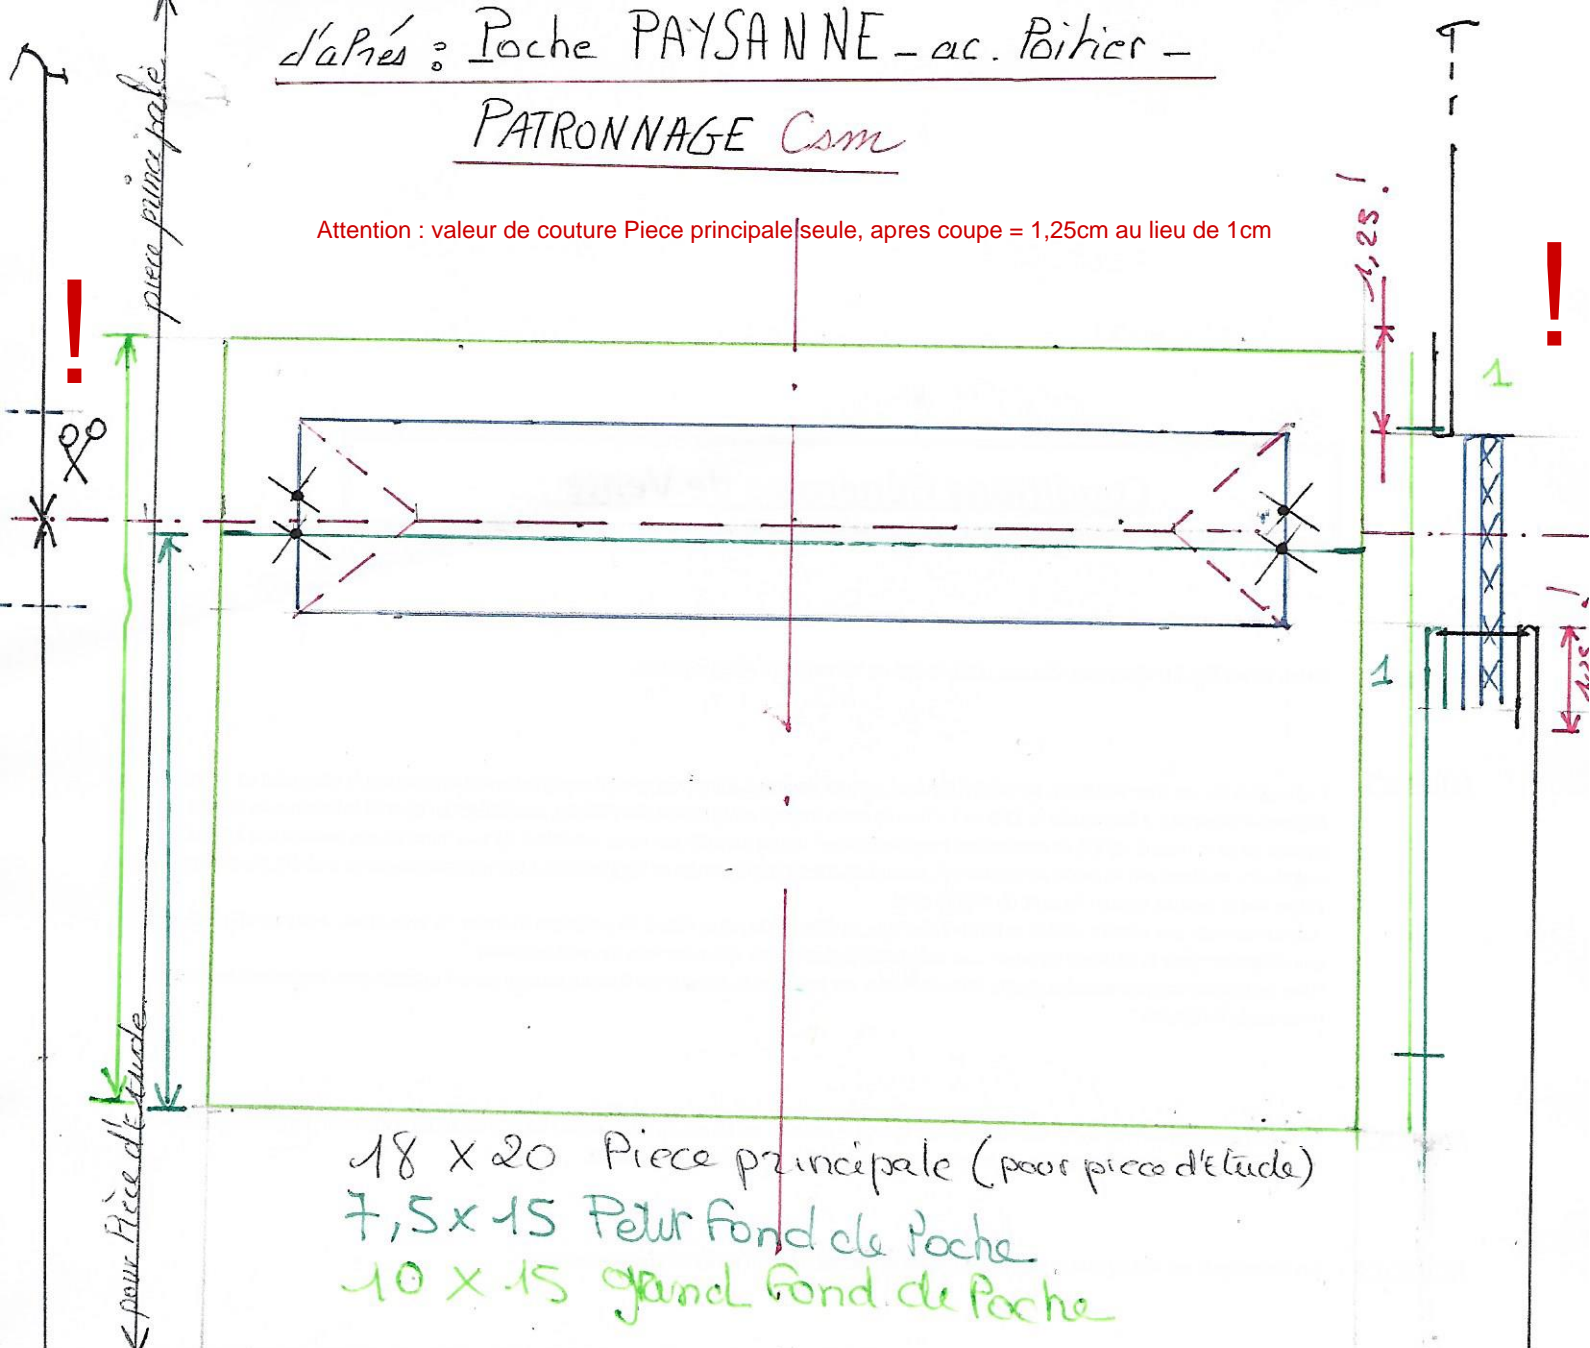 d'aprés : Poche PAYSANNE - ac. Poitier -
PATRONNAGE Csm
Attention : valeur de couture Piece principale seule, apres coupe = 1,25cm au lieu de 1cm
piece principale
!
!
1,25 !
1
1
1,25 !
< pour Pièce d'Etude
18 X 20 Piece principale (pour piece d'Etude)
7,5 x 15 Petit fond de Poche
10 X 15 grand fond de Poche